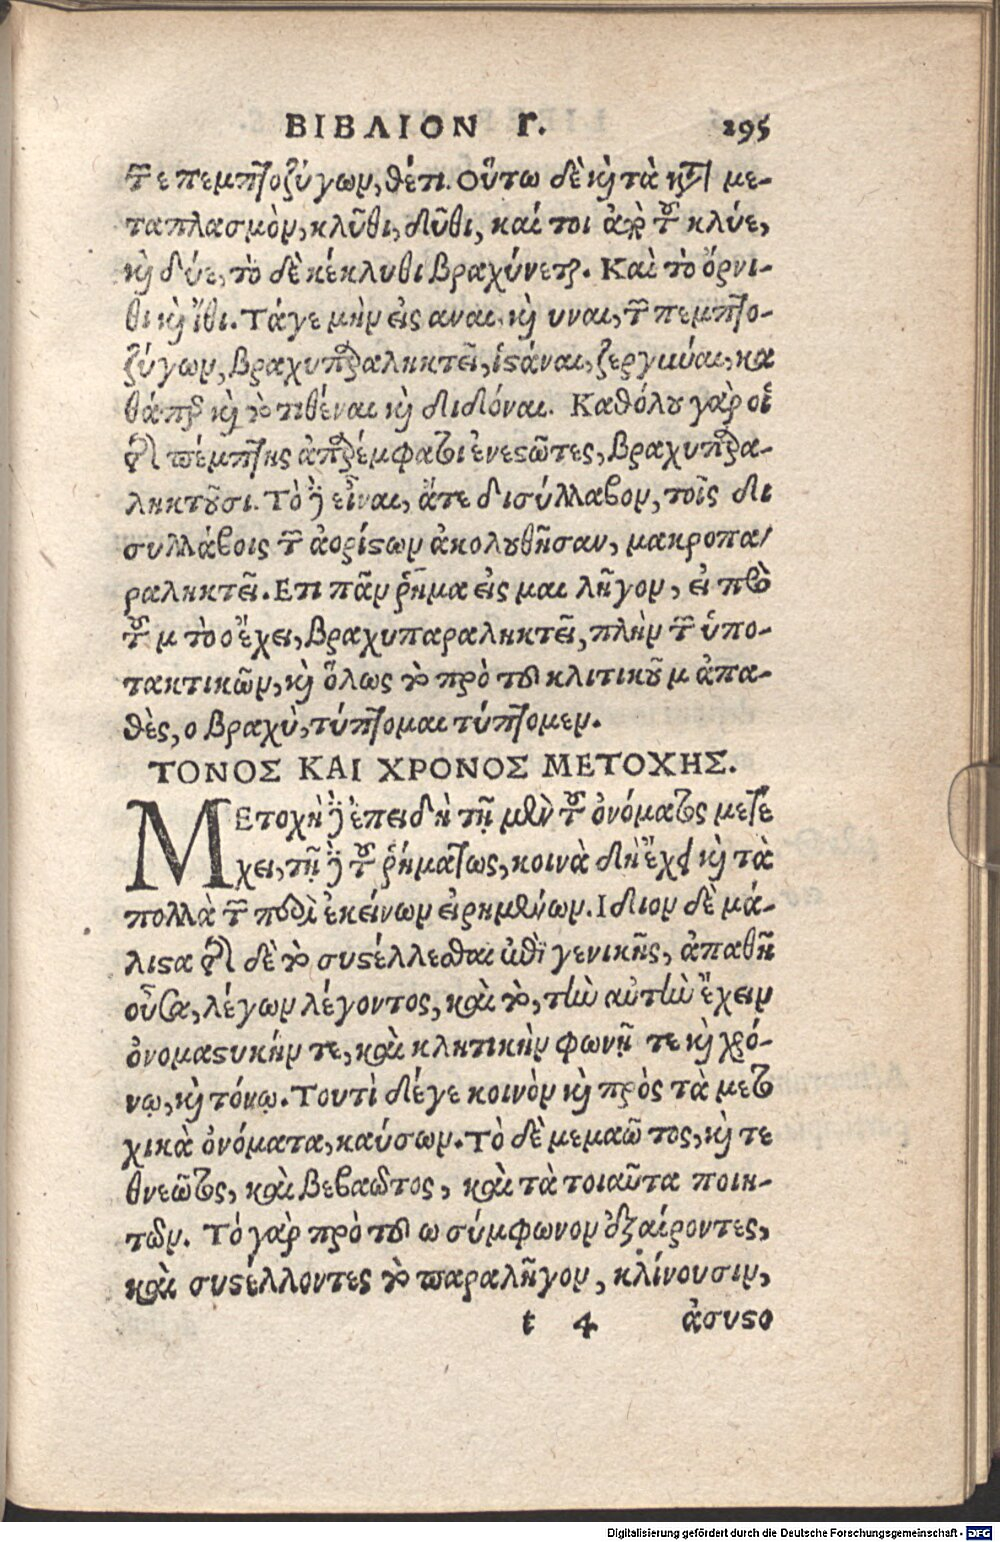 ΒΙΒΛΙΟΝ Γ. 295
τ͂ε πεμπτοζύγων, θέτι. Οὕτω δὲ καὶ τὰ κτ̃ με-
ταπλασμὸν, κλῦθι, δῦθι, καί τοι ἀπὸ τοῦ κλύε,
καὶ δύε, τὸ δὲ κέκλυθι βραχύνεται. Καὶ τὸ ὄρνι-
θι καὶ ἴθι. Τάγε μὴν εἰς αναι, καὶ υναι, τῶν πεμπτο-
ζύγων, βραχυπαραληκτεῖ, ἱστάναι, ζευγνύναι, κα
θάπερ καὶ τὸ τιθέναι καὶ διδόναι. Καθόλου γὰρ οἱ
τῆς πέμπτης ἀπαρέμφατοι ἐνεστῶτες, βραχυπαρα-
ληκτοῦσι. Τὸ δὲ εἶναι, ἅτε δισύλλαβον, τοῖς δι
συλλάβοις τῶν ἀορίστων ἀκολουθῆσαν, μακροπα/
ραληκτεῖ. Ετι πᾶν ῥῆμα εἰς μαι λῆγον, εἰ πρὸ
τοῦ μ τὸ ο ἔχει, βραχυπαραληκτεῖ, πλὴν τῶν ὑπο-
τακτικῶν, καὶ ὅλως τὸ πρὸ τοῦ κλιτικοῦ μ ἀπα-
θὲς, ο βραχὺ, τύπτομαι τύπτομεν.
ΤΟΝΟΣ ΚΑΙ ΧΡΟΝΟΣ ΜΕΤΟΧΗΣ.
ΜΕτοχὴ δὲ ἐπειδὴ τῇ μὲν τοῦ ὀνόματος μετέ
χει, τῇ δὲ τοῦ ῥήματος, κοινὰ δὴ ἔχει καὶ τὰ
πολλὰ τῶν περὶ ἐκείνων εἰρημένων. Ιδιον δὲ μά-
λιστα τῆς δὲ τὸ συστέλλεσθαι ἐπὶ γενικῆς, ἀπαθῆ
οὖσα, λέγων λέγοντος, καὶ τὸ, τὴν αὐτὴν ἔχειν
ὀνομαστικήν τε, καὶ κλητικὴν φωνῇ τε καὶ χρό-
νῳ, καὶ τόνῳ. Τουτὶ δέγε κοινὸν καὶ πρὸς τὰ μετο
χικὰ ὀνόματα, καύσων. Τὸ δὲ μεμαῶτος, καὶ τε
θνεῶτος, καὶ βεβαῶτος, καὶ τὰ τοιαῦτα ποιη-
τῶν. Τὸ γὰρ πρὸ τοῦ ω σύμφωνον ἐξαίροντες,
καὶ συστέλλοντες τὸ παραλῆγον, κλίνουσιν,
t 4 ἀσυστο
Digitalisierung gefördert durch die Deutsche Forschungsgemeinschaft - DFG